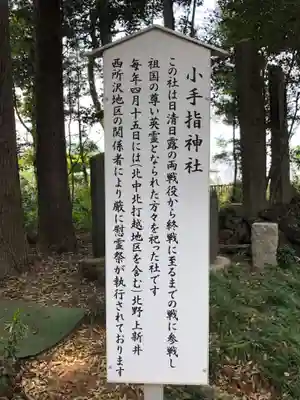 小手指神社
この社は日清日露の両戦役から終戦に至るまでの戦に参戦し
祖国の尊い英霊となられた方々を祀った社です
毎年四月十五日には(北中北打越地区を含む)北野 上新井
西所沢地区の関係者により厳に慰霊祭が執行されております